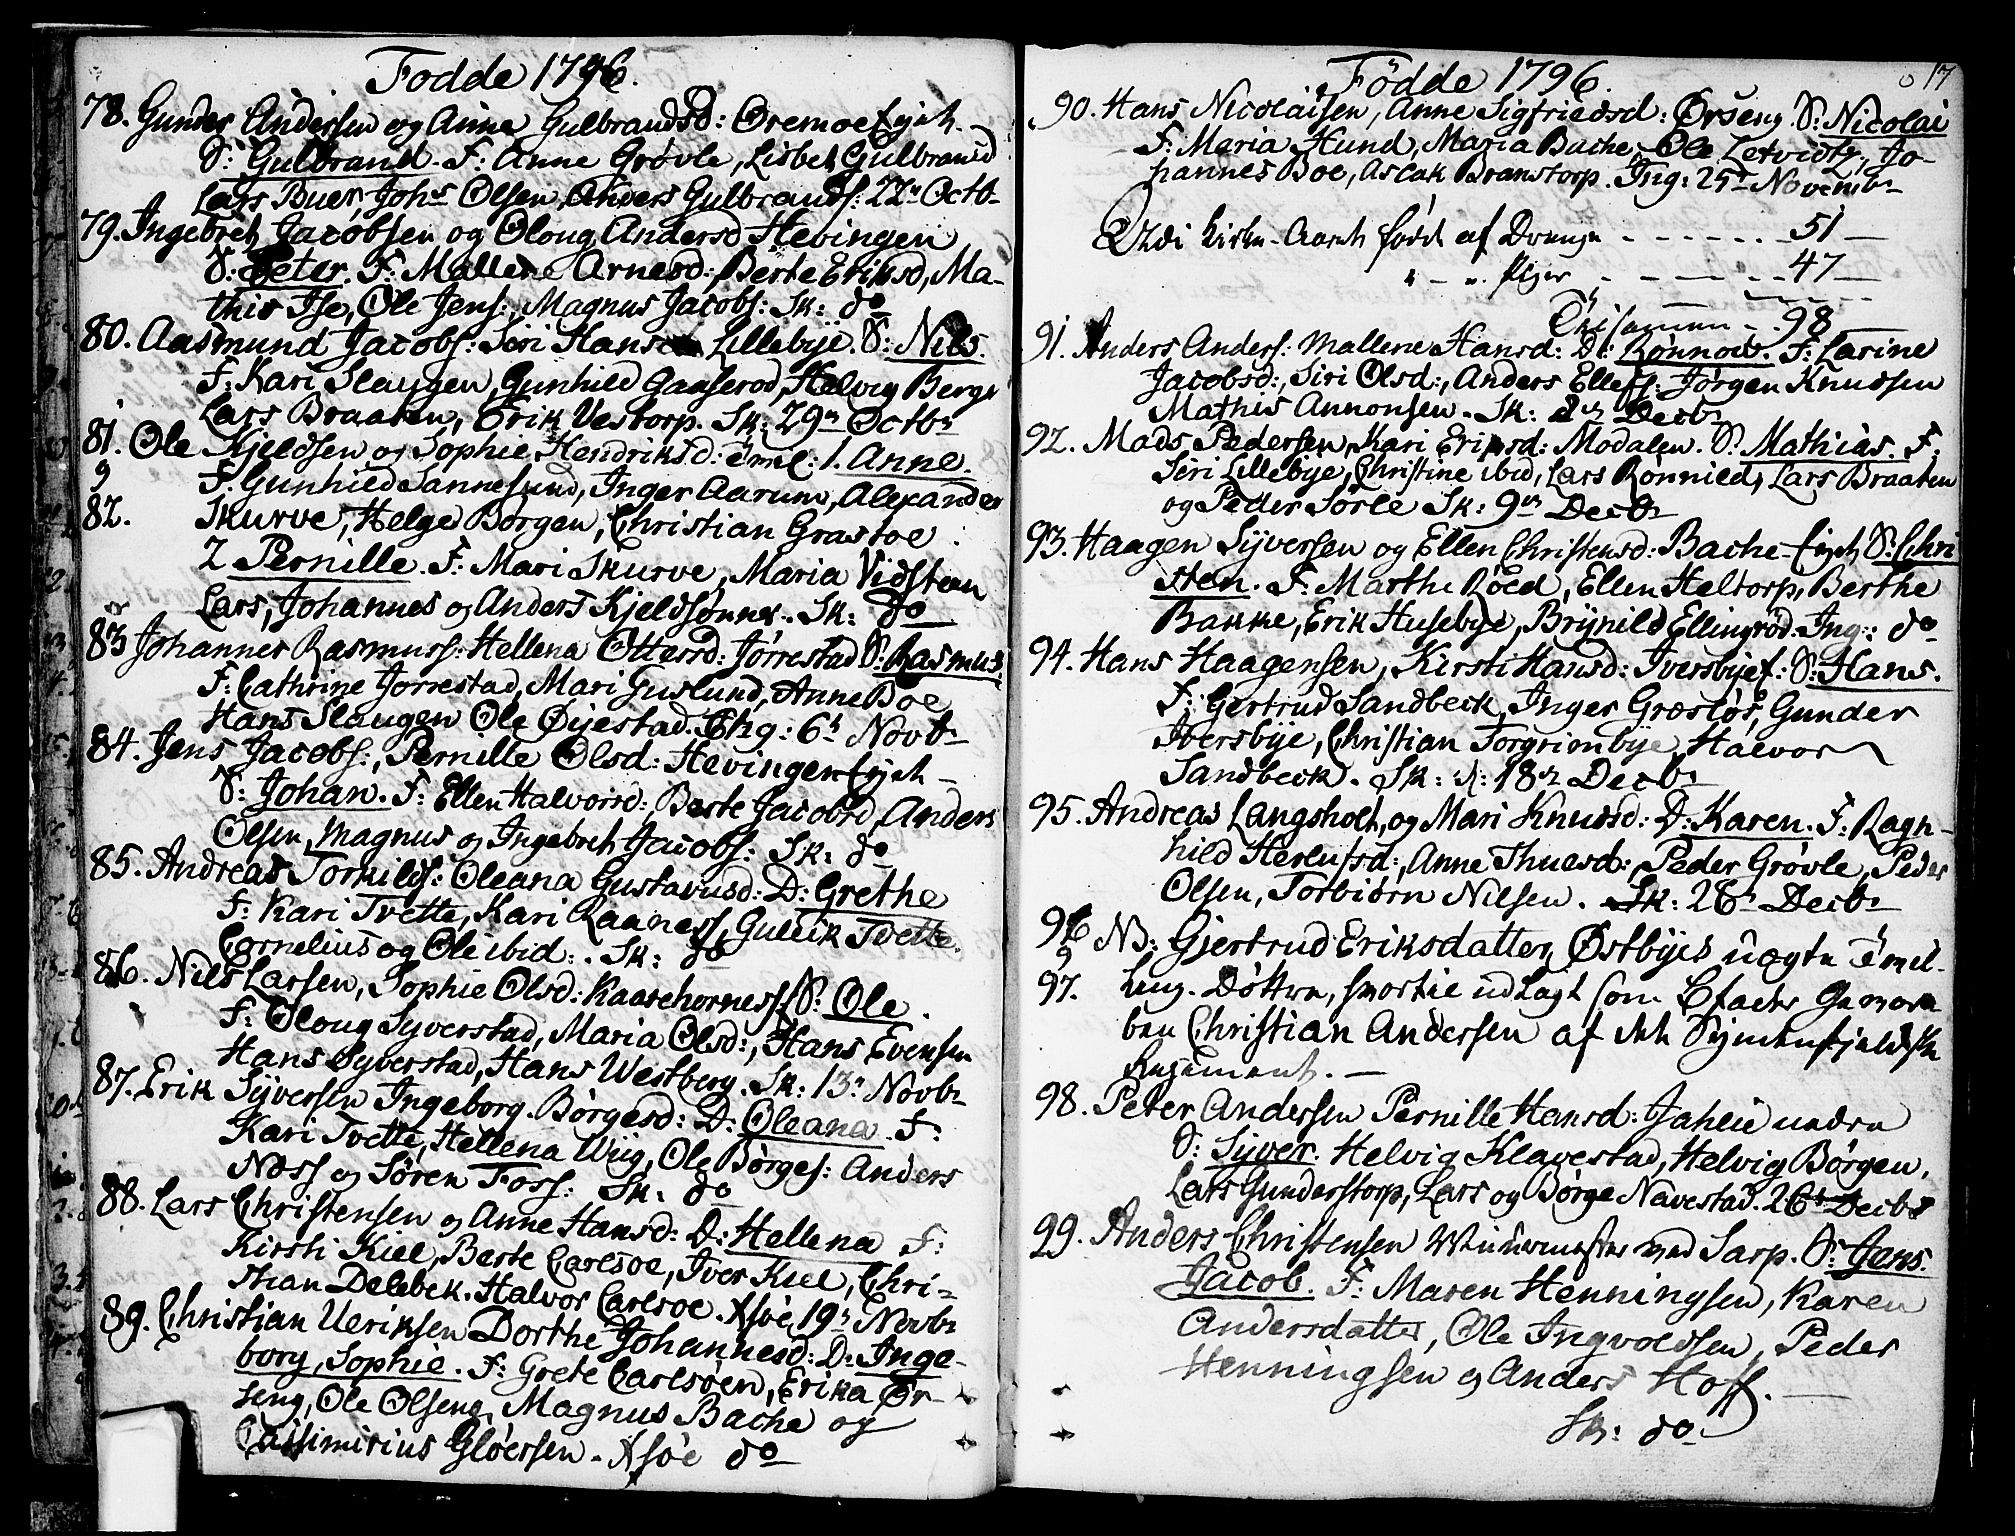 Fødde 1796.
78. Gunder Andersen og Anne Gulbrandsd: Oremoe
S: Gulbrand. F: Anne Grøvle, Lisbet Gulbransd
Lars Buer, Johs Olsen, Anders Gulbrands: 22n Octb
79. Ingebret Jacobsen og Oloug Andersd Hevingen
S: Peter. F: Mallene Arnesd: Berte Eriksd, Ma-
this Ise, Ole Jens:, Magnus Jacobs: Sk: do
80. Aasmund Jacobs: Siri Hansd Lillebye. S: Nils.
F: Kari Slaugen, Gunhild Gaaserød, Helvig Berge
Lars Braaten, Erik Vestorp. Sk: 29n Octbr
81. Ole Kjeldsen og Sophie Hendriksd: 1. Anne.
F. Gunhild Sannesund, Inger Aarum, Alexander
82. Skurve, Helge Borgen, Christian Grastoe
2 Pernille. F: Mari Skurve, Maria Vidsteen
Lars, Johannes og Anders Kjeldsønner. Sk: do
83 Johannes Rasmuss: Hellena Ottersd: Jørrestad S: Rasmus.
F: Cathrine Jørrestad, Mari Guslund, Anne Boe
Hans Slaugen Ole Øyestad. 6t Novbr
84. Jens Jacobs:, Pernille Olsd: Hevingen
S: Johan. F: Ellen Halvorsd: Berte Jacobsd, Anders
Olsen, Magnus og Ingebret Jacobs: Sk: do
85. Andreas Torkilds: Oleana Gustavusd: D: Grethe
F: Kari Tvette, Kari Raaness, Gulik Tvette
Cornelius og Ole ibid:. Sk: do
86. Nils Larsen, Sophie Olsd: Kaarehorness S: Ole.
F: Oloug Syverstad, Maria Olsd:, Hans Evensen
Hans Syverstad, Hans Westberg. Sk: 13n Novbr
87. Erik Syversen Ingeborg. Børgesd: D: Oleana. F:
Kari Tvette, Hellena Wiig, Ole Børges: Anders
Næss og Søren Foss: Sk: do
88. Lars Christensen og Anne Hansd: D: Hellena F:
Kirsti Kiel, Berte Carlsoe, Iver Kiel, Chri-
stian Delebek. Halvor Carlsoe. 19n Novbr
89. Christian Ulriksen Dorthe Johannesd: D: Inge-
borg, Sophie. F: Grete Carlsøen, Erika Ør-
seng, Ole Olseng, Magnus Bache og
Cassimirius Gløersen. do
Fødde 1796. 17
90. Hans Nicolaisen, Anne Sigfriedsd: Ørseng. S: Nicolai
F: Maria Hund, Maria Bache, Ole Letvidt, Jo-
hannes Boe, Ascak Branstorp. Ing: 25n Novembr
kirke-Aaret fødd af Drenge - - - - 51
" - " Piger - - - - 47
Tilsamen - 98
91. Anders Anders: Mallene Hansd: D: Rønnow. F: Larine
Jacobsd:, Siri Olsd:, Anders Ellefs: Jørgen Knudsen
Mathis Annonsen. Sk: 2n Decbr
92. Mads Pedersen, Kari Eriksd: Modalen. S: Mathias. F:
Siri Lillebye, Christine ibid, Lars Rønnild, Lars Braaten
og Peder Sørle Sk: 9n Decbr
93. Haagen Syversen og Ellen Christensd: Bache S: Chri
sten. F: Marthe Røed, Ellen Heltorp, Berthe
Bakke, Erik Husebye, Brynild Ellingrød. Ing: do
94. Hans Haagensen, Kirsti Hansd: Iversbye: S: Hans.
F: Gertrud Sandbeck, Inger Græsløs, Gunder
Iversbye, Christian Torgrimbye, Halvor
Sandbeck. Sk: 18n Decbr
95. Andreas Langsholt, og Mari Knudsd: D: Karen. F: Ragn-
hild Herlufsd:, Anne Thuesd: Peder Grøvle, Peder
Olsen, Torbiørn Nilsen. Sk: 26n Decbr
96 NB: Gjertrud Eriksdatter, Østbyes uægte
97. Døttre, udlagt som
Christian Andersen af det
Regiment.
98. Peter Andersen Pernille Hansd: Jahlie nedre
S: Syver. Helvig Klavestad, Helvig Børgen,
Lars Gunderstorp, Lars og Børge Navestad. 26t Decbr
99. Anders Christensen ved Sarp. S: Jens
Jacob. F: Maren Henningsen, Karen
Andersdatter, Ole Ingvoldsen, Peder
Henningsen og Anders Hoff.
Sk: do